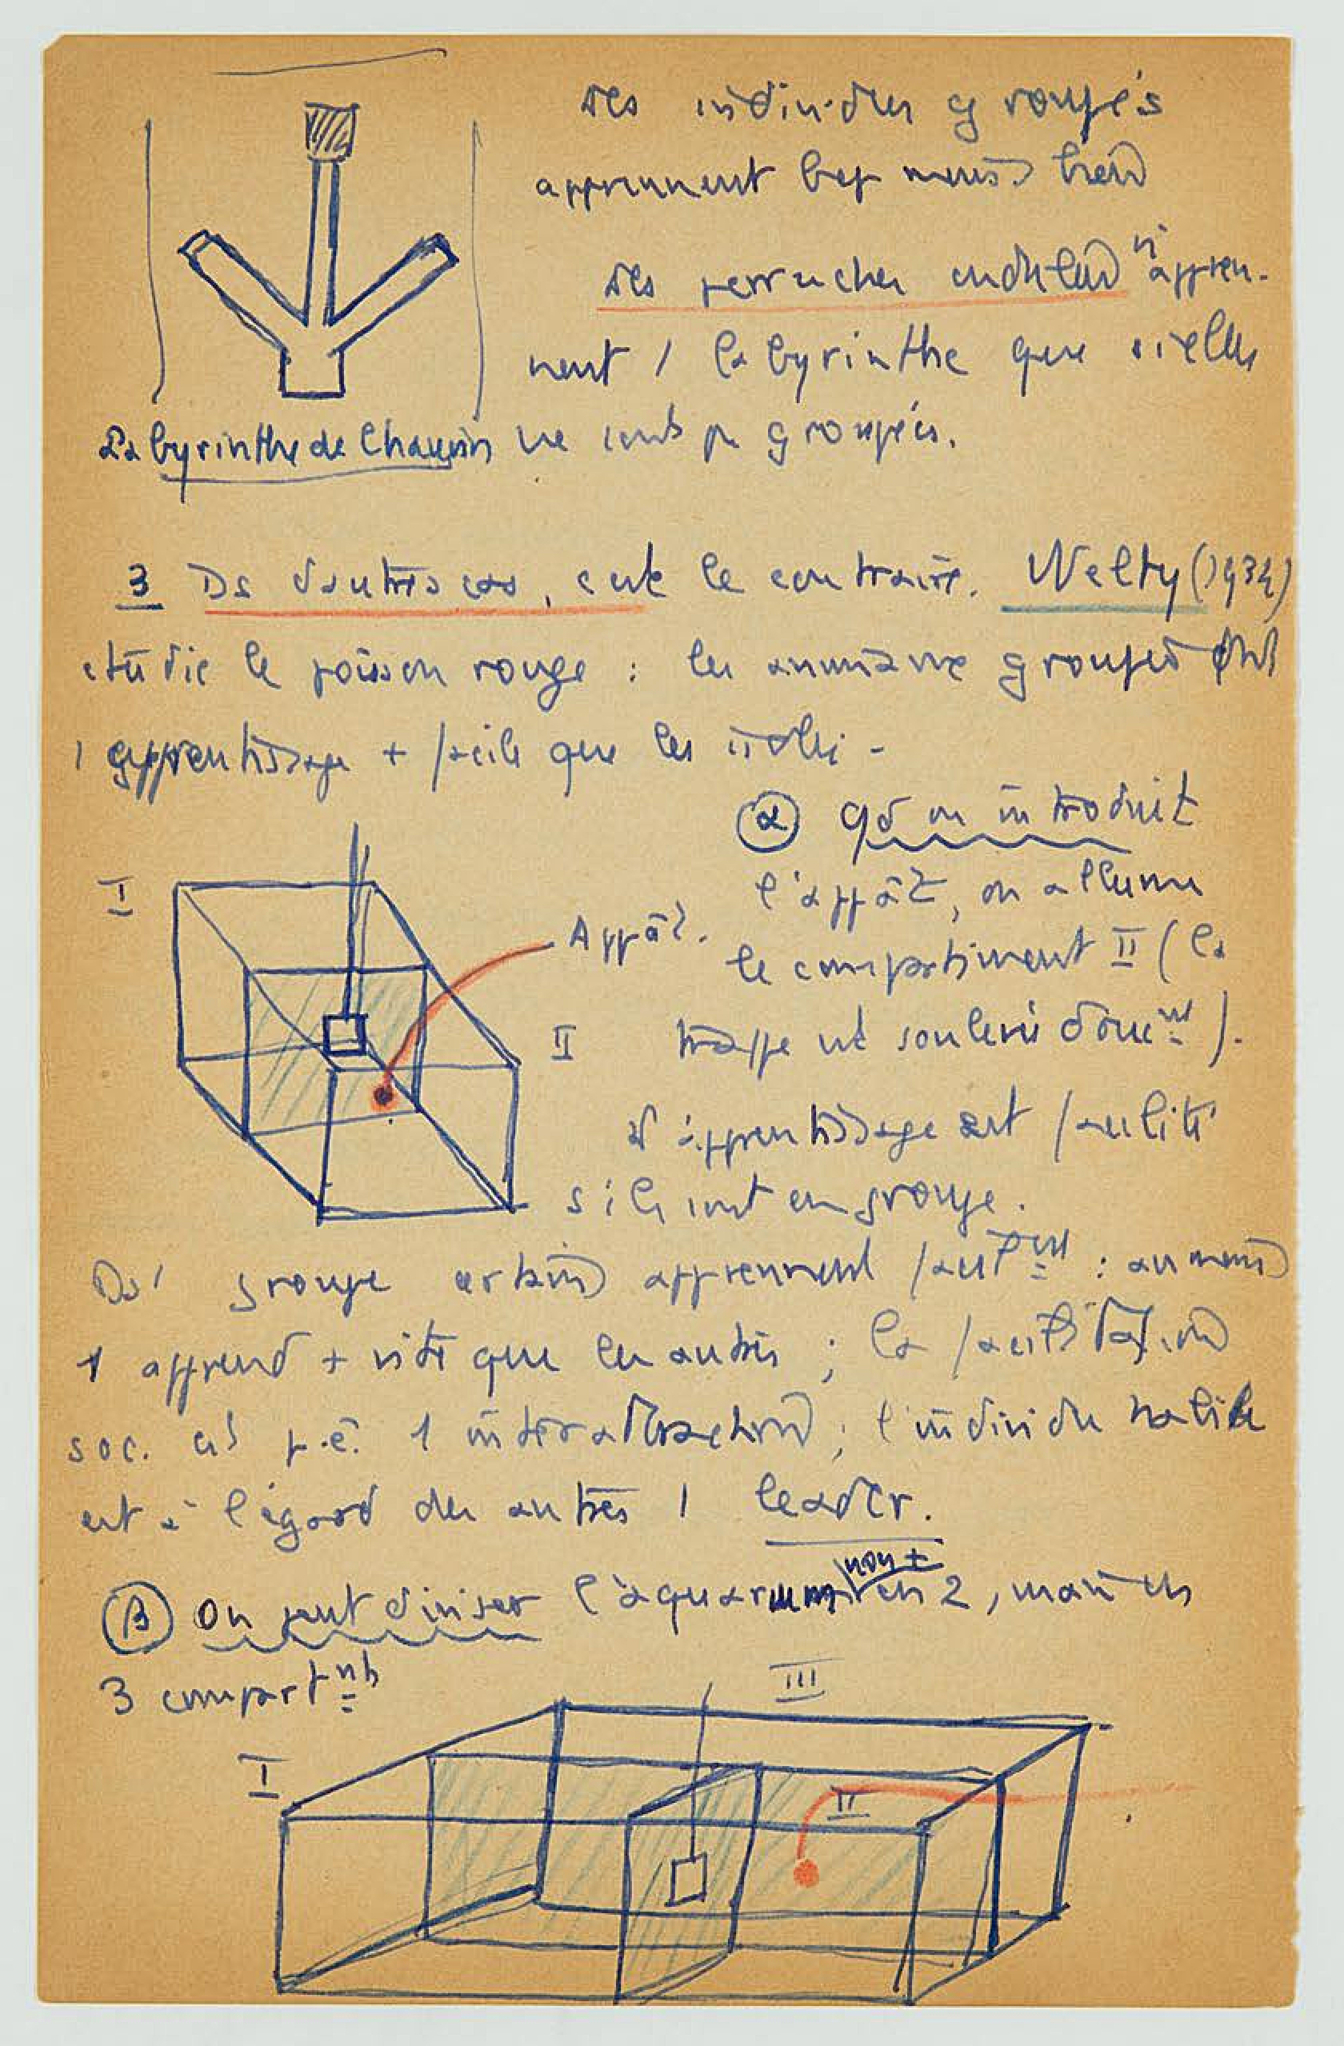 Les individus groupés
apprennent bcp moins bien
Les perruches ondulées n'appren-
nent / labyrinthe que si elles
Labyrinthe de Chauvin ne sont p groupées.
3 Ds d'autres cas, c'est le contraire. Welty (1934)
étudie le poisson rouge : les animaux groupés ont
1 apprentissage + facile que les isolés -
α Qd on introduit
l'appât, on allume
le compartiment II (la
trappe est soulevée doucnt).
I
Appât.
II
L'apprentissage est facilité
s'ils sont en groupe.
Ds 1 groupe certains apprennent : au moins
1 apprend + vite que les autres ; la facilitation
soc. est p.ê. 1 interattraction ; l'individu habile
est à l'égard des autres 1 leader.
β On peut diviser l'aquarium non + en 2, mais en
3 compartnts
III
I
II